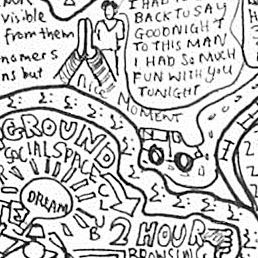 visible
from them
ns but
BACK TO SAY
GOODNIGHT
TO THIS MAN
I HAD SO MUCH
FUN WITH YOU
TONIGHT
Nice
MOMENT
GROUND
SOCIAL SPACE
DREAM
2 HOUR
BROWSING